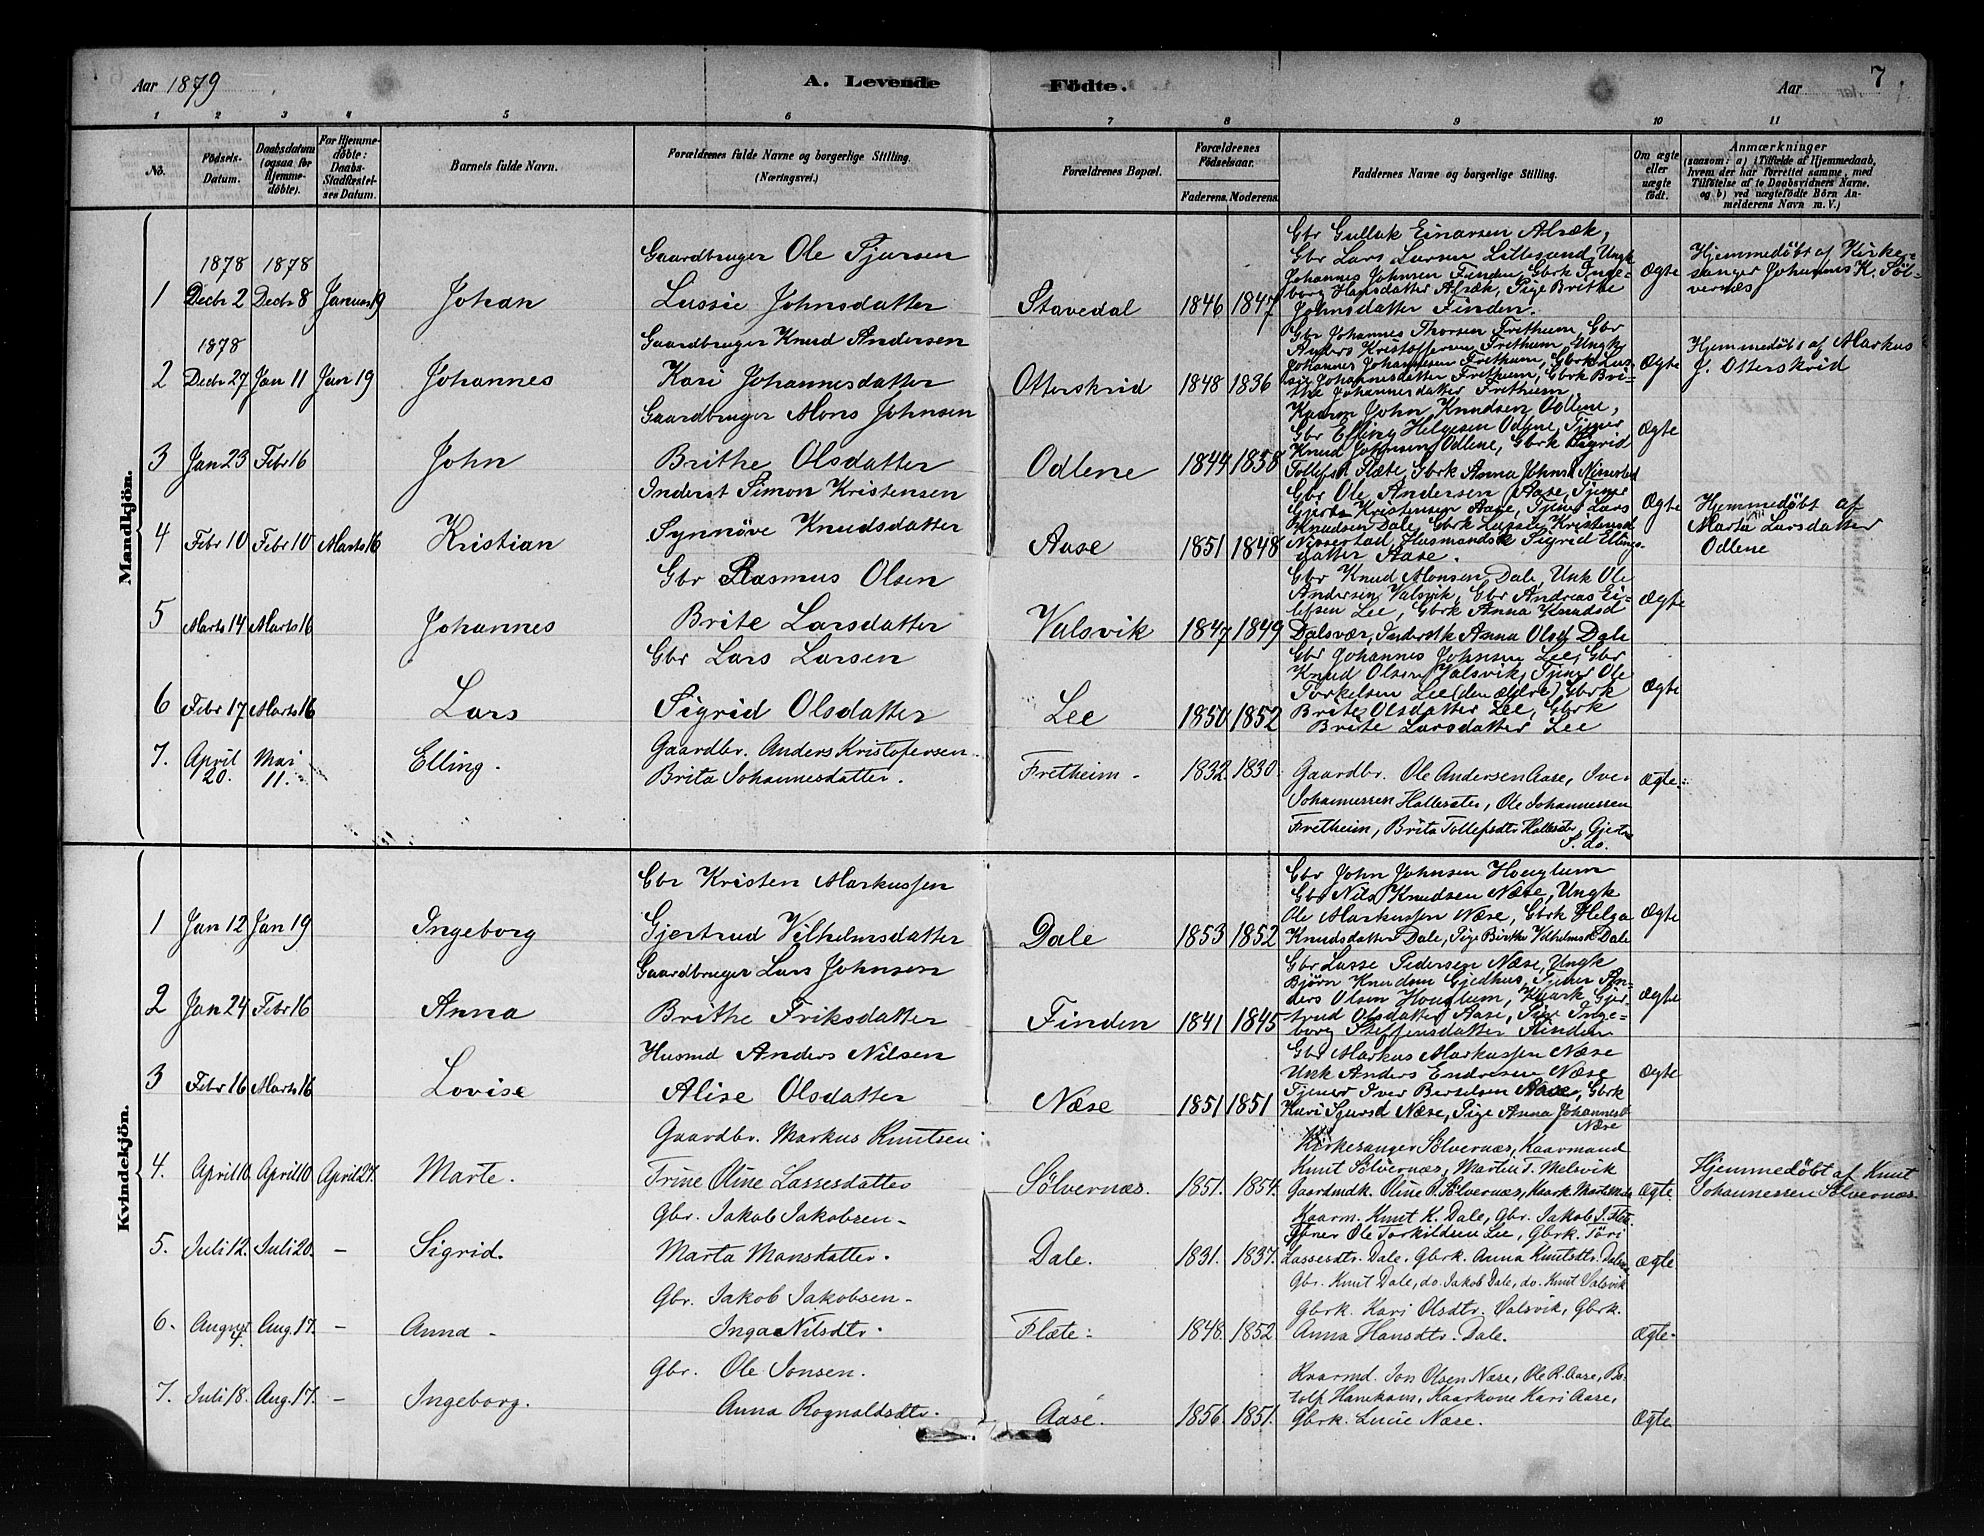 Aar 1879
A. Levende Födte.
Aar
7
1 2 3 4 5 6 7 8 9 10 11
No.
Födsels-Datum.
Daabsdatum (ogsaa for Hjemme-döbte).
For Hjemme-döbte: Daabs-Stadfæstel-ses Datum.
Barnets fulde Navn.
Forældrenes fulde Navne og borgerlige Stilling. (Næringsvei.)
Forældrenes Bopæl.
Forældrenes Födselsaar.
Faderens. Moderens.
Faddernes Navne og borgerlige Stilling.
Om ægte eller uægte födt.
Anmærkninger
(saasom: a) i Tilfælde af Hjemmedaab,
hvem der har forrettet samme, med
Tilföielse af to Daabsvidners Navne.
og b) ved uægtefödte Börn An-
melderens Navn m. V.)
Mandkjön.
1878 1878
1 Decbr 2 Decbr 8 Januar 19 Johan
Gaardbruger Ole Sjursen
Lussie Johnsdatter
Stavedal 1846 1847
Gbr Gullak Einarsen Alræk,
Gbr Lars Larsen Lillesand, Ungk
Johannes Johnsen Finden, Gbrk Inge-
borg Hansdatter Alræk, Pige Brithe
Johnsdatter Finden.
Ægte
Hjemmedöbt af Kirke-
sanger Johannes K. Söl-
vernæs
1878
2 Decbr 27 Jan 11 Jan 19 Johannes
Gaardbruger Knud Andersen
Kari Johannesdatter
Otterskrid 1848 1836
Gbr Johannes Thorsen Fretheim, Gbr
Anders Kristoffersen Fretheim, Ungk
Johannes Johannesen Fretheim, Gbrk Lus-
sie Johannesdatter Fretheim, Gbrk Bri-
the Johannesdatter Fretheim
Ægte
Hjemmedöbt af Markus
J. Otterskrid
3 Jan 23 Febr 16 John
Gaardbruger Mons Johnsen
Brithe Olsdatter
Odlene 1844 1858
Kaarm John Knudsen Odlene,
Gbr Elling Helgesen Odlene, Tjener
Knud Johnsen Odlene, Gbrk Sigrid
Tollefsd Flæte, Gbrk Anna Johnsd Nissestad
Ægte
4 Febr 10 Febr 10 Marts 16 Kristian
Inderst Simon Kristensen
Synnöve Knudsdatter
Aase 1851 1848
Gbr Ole Andersen Aase, Tjener
Gjerts Kristensen Aase, Tjener Lars
Knudsen Dale, Gbrk Lussie Kristensd
Nissestad, Husmandsk Sigrid Ellings-
datter Aase.
Ægte
Hjemmedöbt af
Marta Larsdatter
Odlene
5 Marts 14 Marts 16 Johannes
Gbr Rasmus Olsen
Brite Larsdatter
Valsvik 1847 1849
Gbr Knud Monsen Dale, Unk Ole
Andersen Valsvik, Gbr Andreas Ei-
lefsen Lee, Gbrk Anna Knudsd
Dalsvær, Inderstk Anna Olsd Dale
Ægte
6 Febr 17 Marts 16 Lars
Gbr Lars Larsen
Sigrid Olsdatter
Lee 1850 1852
Gbr Johannes Johnsen Lee, Gbr
Knud Olsen Valsvik, Tjener Ole
Torkelsen Lee (den ældre), Gbrk
Brite Olsdatter Lee, Gbrk
Brite Larsdatter Lee
Ægte
7. April 20. Mai 11. Elling.
Gaardbr. Anders Kristofersen
Brita Johannesdatter.
Fretheim - 1832 1830.
Gaardbr. Ole Andersen Aase, Iver
Johannessen Hallersete, Ole Johannessen
Fretheim, Brita Tollefsdtr Hallerste, Gjertru
S. do.
Ægte
Kvindekjön.
1 Jan 12 Jan 19 Ingeborg
Gbr Kristen Markussen
Gjertrud Vilhelmsdatter
Dale 1853 1852
Gbr John Johnsen Houglum
Gbr Nils Knudsen Næse, Ungk
Ole Markussen Næse, Gbrk Helga
Knudsdatter Dale, Pige Birthe Vilhelmsd Dale
Ægte
2 Jan 24 Febr 16 Anna
Gaardbruger Lars Johnsen
Brithe Eriksdatter
Finden 1841 1845
Gbr Lasse Pedersen Næse, Ungk
Björn Knudsen Gjedhus, Tjener An-
ders Olsen Houglum, Kaark Gjer-
trud Olsdatter Aase, Pige Inge-
borg Steffensdatter Finden
Ægte
3 Febr 16 Marts 16 Lovise
Husmd Anders Nilsen
Alise Olsdatter
Næse 1851 1851
Gbr Markus Markussen Næse
Unk Anders Endresen Næse
Tjener Iver Bertelsen Aase, Gbrk
Kari Sjursd Næse, Pige Anna Johannesd
Næse
Ægte
4. April 10. April 10 April 27. Marte.
Gaardbr. Markus Knutsen
Trine Oline Lassesdatter
Sölvernæs. 1851. 1854.
Kirkesanger Sölvernæs, Kaarmand
Knut Sölvernæs, Martin T. Melsvik
Gaardmdk. Oline O. Sölvernæs, Kaark. Marte
Ægte.
Hjemmedöbt af Knut
Johannessen Sölvernæs.
5. Juli 12. Juli 20. - Sigrid.
Gbr. Jakob Jakobsen -
Marta Monsdatter.
Dale. 1831. 1837.
Kaarm. Knut K. Dale, Gbr. Jakob J. Flete
Tjener Ole Torkildsen Lee, Gbrk. Töri
Lassesdtr. Dale, Gbrk. Anna Knutsdtr. Dale
Ægte
6. August 4. Aug. 17. - Anna -
Gbr. Jakob Jakobsen -
Inga Nilsdtr.
Flete - 1848. 1852
Gbr. Knut Dale, do. Jakob Dale, do. Knut Valsvik
Gbrk. Kari Olsdtr. Valsvik, Gbrk.
Anna Hansdtr. Dale.
Ægte -
7. Juli 18. Aug. 17. - Ingeborg.
Gbr. Ole Jonsen.
Anna Rognaldsdtr.
Aase. 1856. 1851.
Kaarmd. Jon Olsen Næse, Ole R. Aase, Bo-
tolf Hamham, Kaarkone Kari Aase,
Gbrk. Lucie Næse.
Ægte